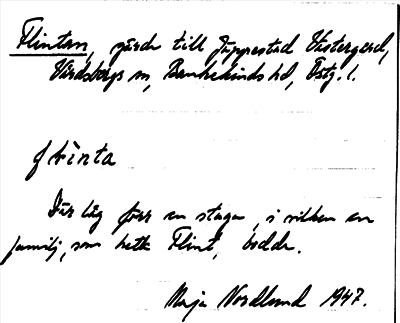 Flintan, gärde till Jupprestad Västergård,
Vårdsbergs sn, Bankekinds hd, Östg. l.
flinta
Där låg förr en stuga, i vilken en
familj, som hette Flint, bodde.
Maja Nordlund 1947.